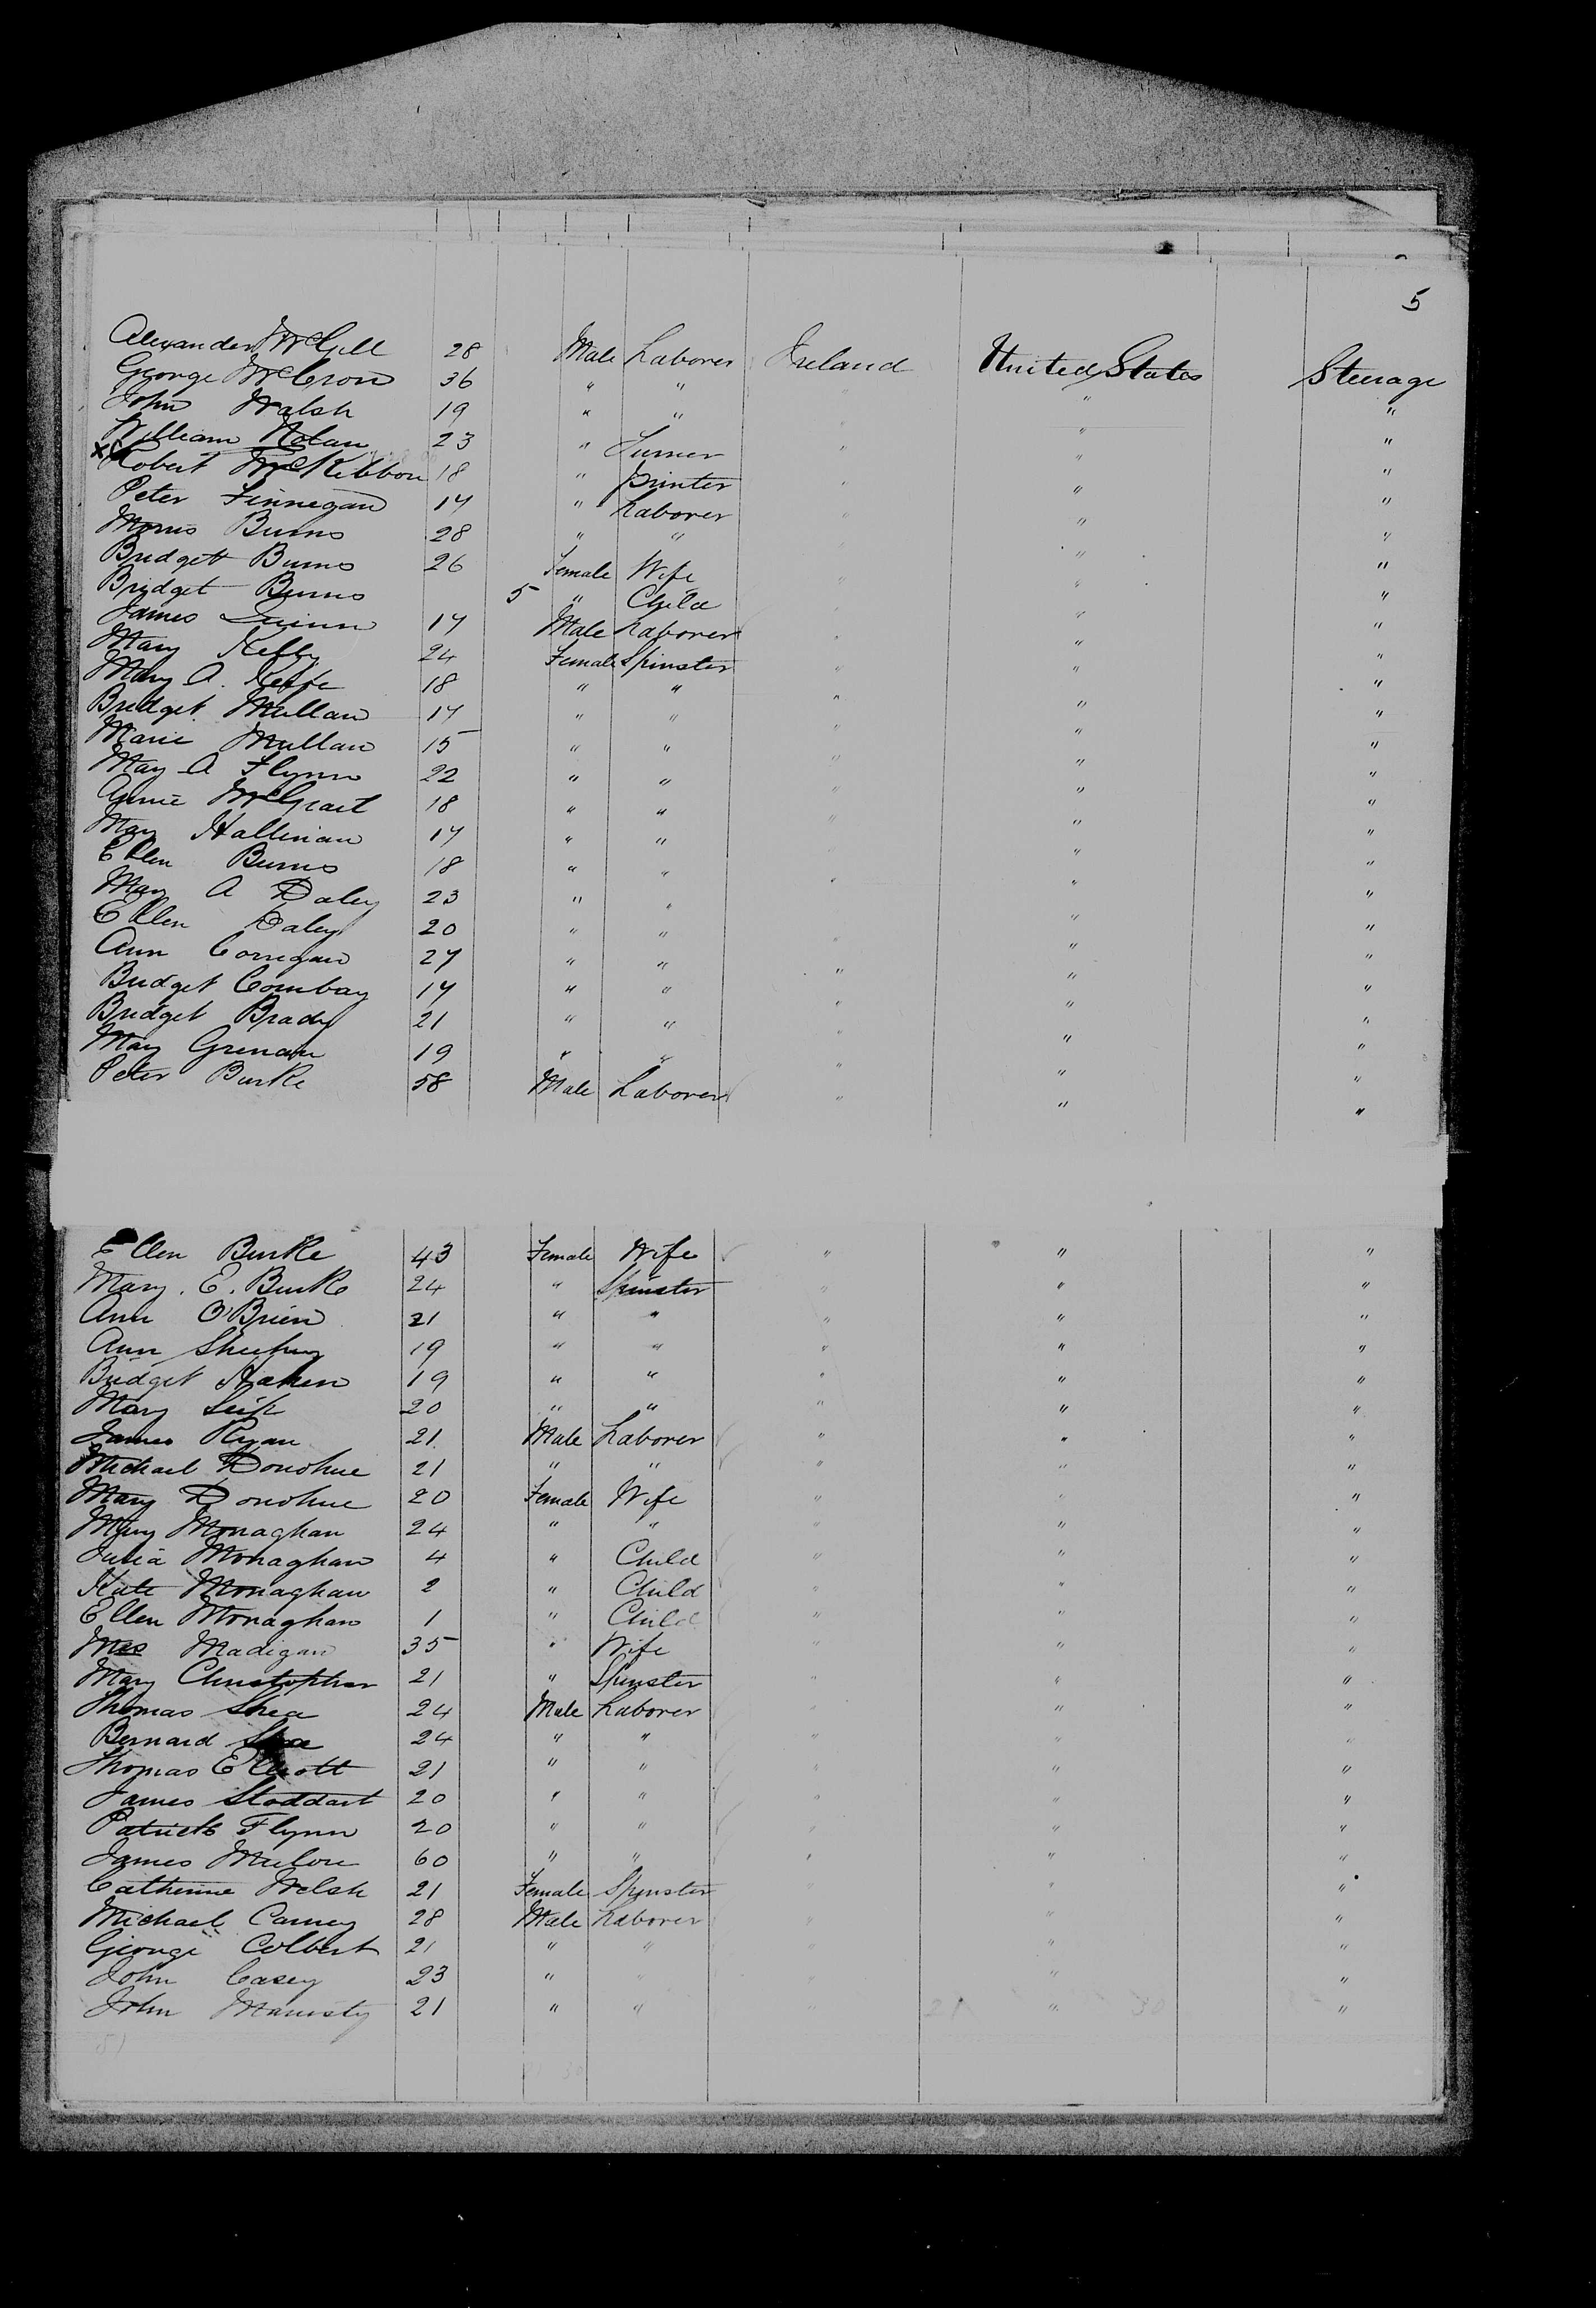 5
Alexander McGill 28 Male Laborer Ireland United States Steerage
George McCron 36 " " " "
John Walsh 19 " " " " "
William Nolan 23 " Turner " " "
x Robert McKibbon 18 " Printer " " "
Peter Finnegan 17 " Laborer " " "
Morris Burns 28 " " " "
Bridget Burns 26 Female Wife " " "
Bridget Burns 5 " Child " "
James Quinn 17 Male Laborer " " "
Mary Kelly 24 Female Spinster " " "
Mary A. Keefe 18 " " " " "
Bridget Mullan 17 " " " " "
Marie Mullan 15 " " " " "
Mary A Flynn 22 " " " " "
Annie 18 " " " " "
Mary Hallinan 17 " " " " "
Ellen Burns 18 " " " " "
Mary A Daley 23 " " " " "
Ellen Daley 20 " " " " "
Ann Corrigan 27 " " " " "
Bridget 17 " " " " "
Bridget Brady 21 " " " " "
Mary 19 " " " " "
Peter Burke 58 Male Laborer " " "
Ellen Burke 43 Female Wife " " "
Mary. E. Burke 24 " Spinster " " "
Ann O'Brien 21 " " " " "
Ann 19 " " " " "
Bridget 19 " " " " "
Mary 20 " " " " "
James Ryan 21 Male Laborer " " "
Michael Donohue 21 " " " " "
Mary Donohue 20 Female Wife " " "
Mary Monaghan 24 " " " " "
Julia Monaghan 4 " Child " " "
Kate Monaghan 2 " Child " " "
Ellen Monaghan 1 " Child " " "
Mrs Madigan 35 " Wife " " "
Mary Christopher 21 " Spinster " " "
Thomas Shea 24 Male Laborer " " "
Bernard Shea 24 " " " " "
Thomas Elliott 21 " " " " "
James Stoddart 20 " " " " "
Patrick Flynn 20 " " " " "
James 60 " " " " "
Catherine Welsh 21 Female Spinster " " "
Michael Carney 28 Male Laborer " " "
George Colbert 21 " " " "
John Casey 23 " " " "
John 21 " " " "
51